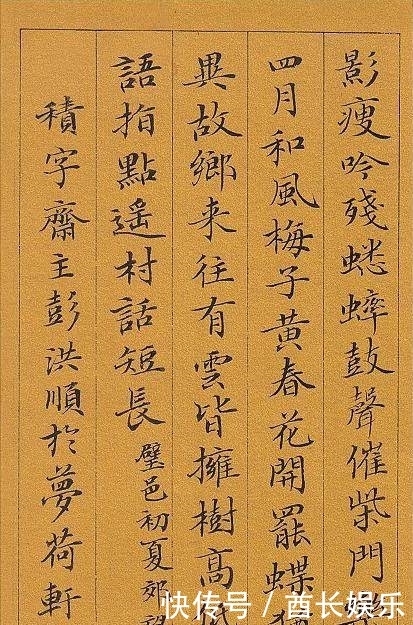 影瘦吟殘蟋蟀鼓聲催柴門
四月和風梅子黄春花開罷蝶
異故鄉来往有雲皆擁樹高
語指點遥村話短長 璧邑初夏郊
積字齋主彭洪順於夢荷軒
快传号 / 酋长娱乐